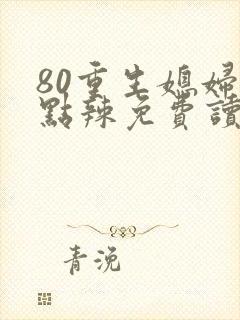 80重生媳婦
點辣免費讀
青浼